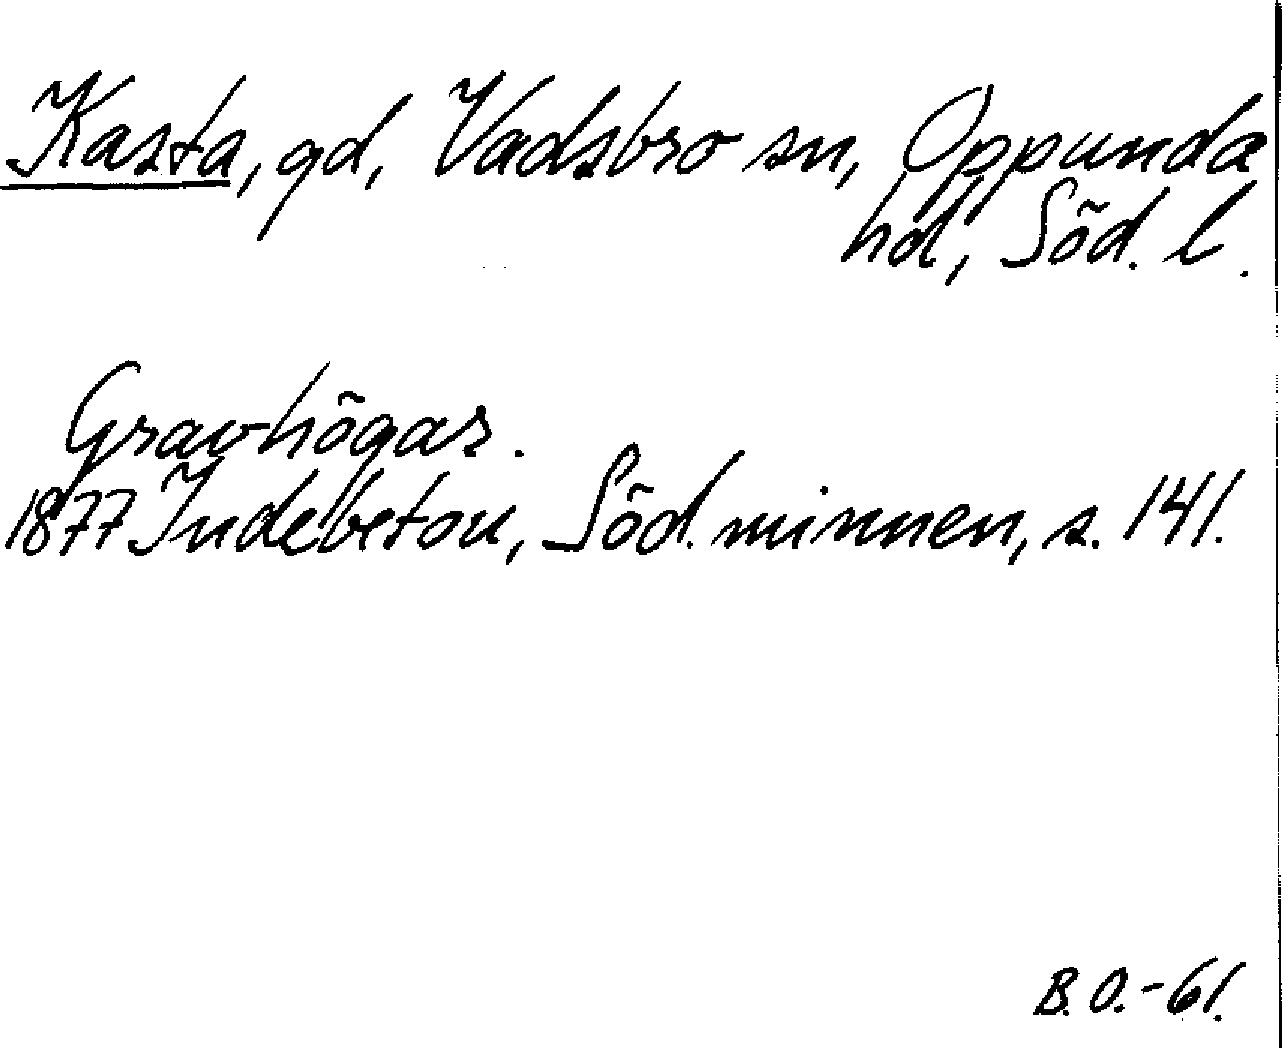 Kasta, gd, Vadsbro sn, Oppunda
hd, Söd. l.
Gravhögar.
1877 Indebetou, Söd. minnen, s. 141.
B.O.-61.